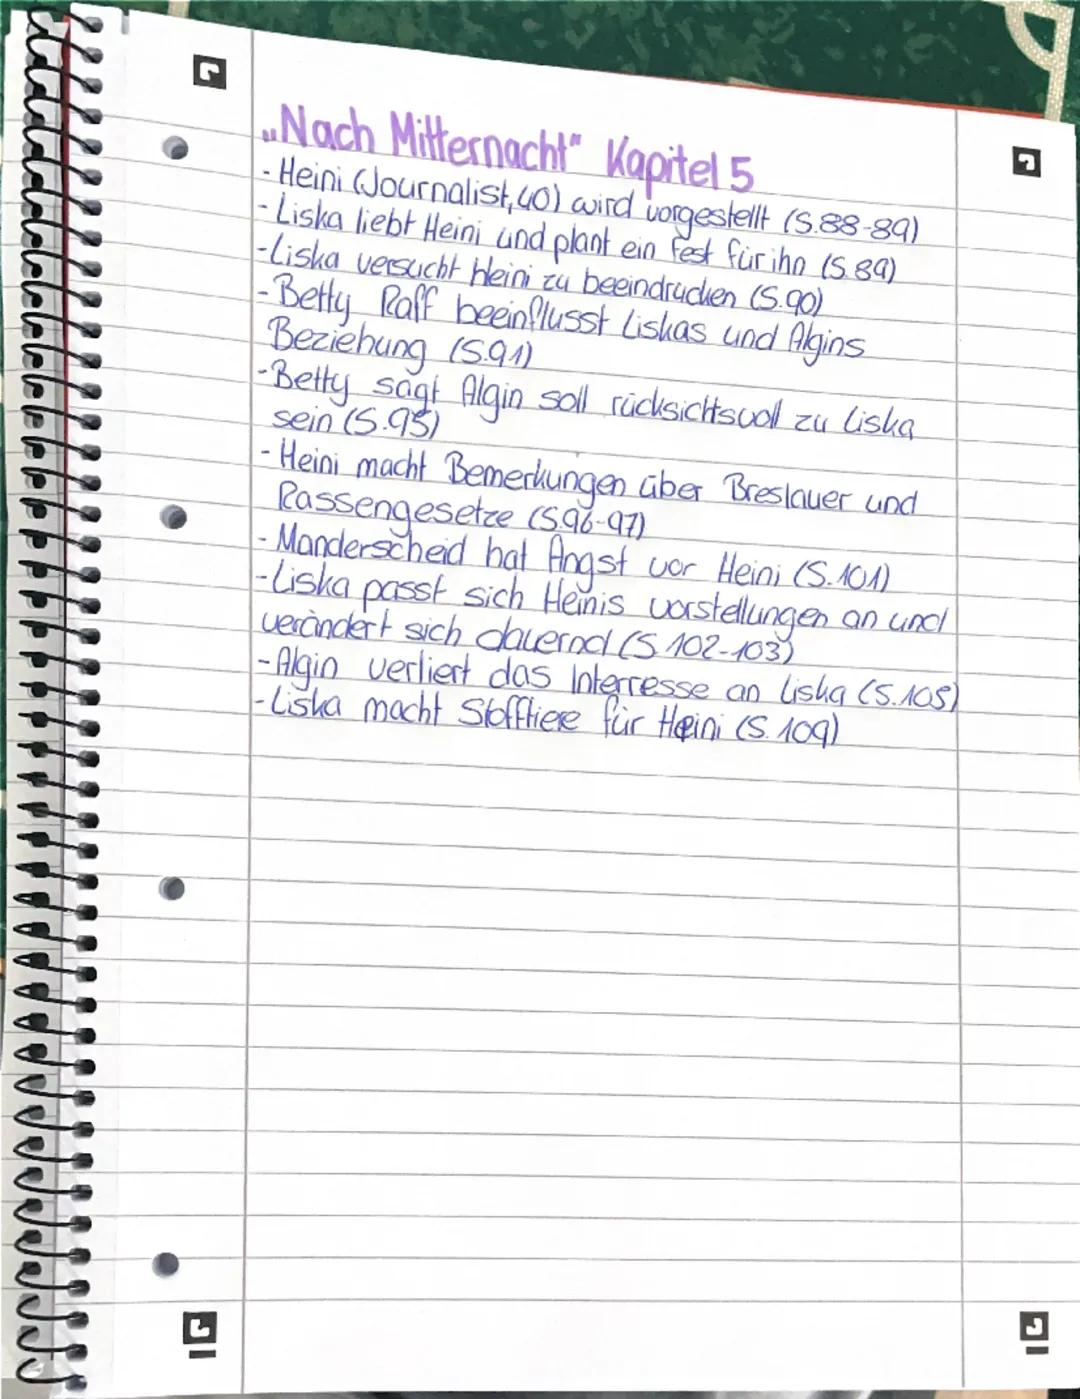 „Nach Mitternacht" Kapitel 5
- Heini (Journalist, 40) wird vorgestellt (S.88-89)
- Liska liebt Heini und plant ein Fest für ihn (S.89)
- Liska versucht Heini zu beeindrucken (S.90)
- Betty Raff beeinflusst Liskas und Algins
Beziehung (S.91)
- Betty sagt Algin soll rücksichtsvoll zu Liska
sein (S.95)
- Heini macht Bemerkungen über Breslauer und
Rassengesetze (S.96-97)
- Manderscheid hat Angst vor Heini (S.101)
- Liska passt sich Heinis vorstellungen an und
verändert sich dauernd (S.102-103)
- Algin verliert das Interresse an Liska (S.105)
- Liska macht Stofftiere für Heini (S.109)